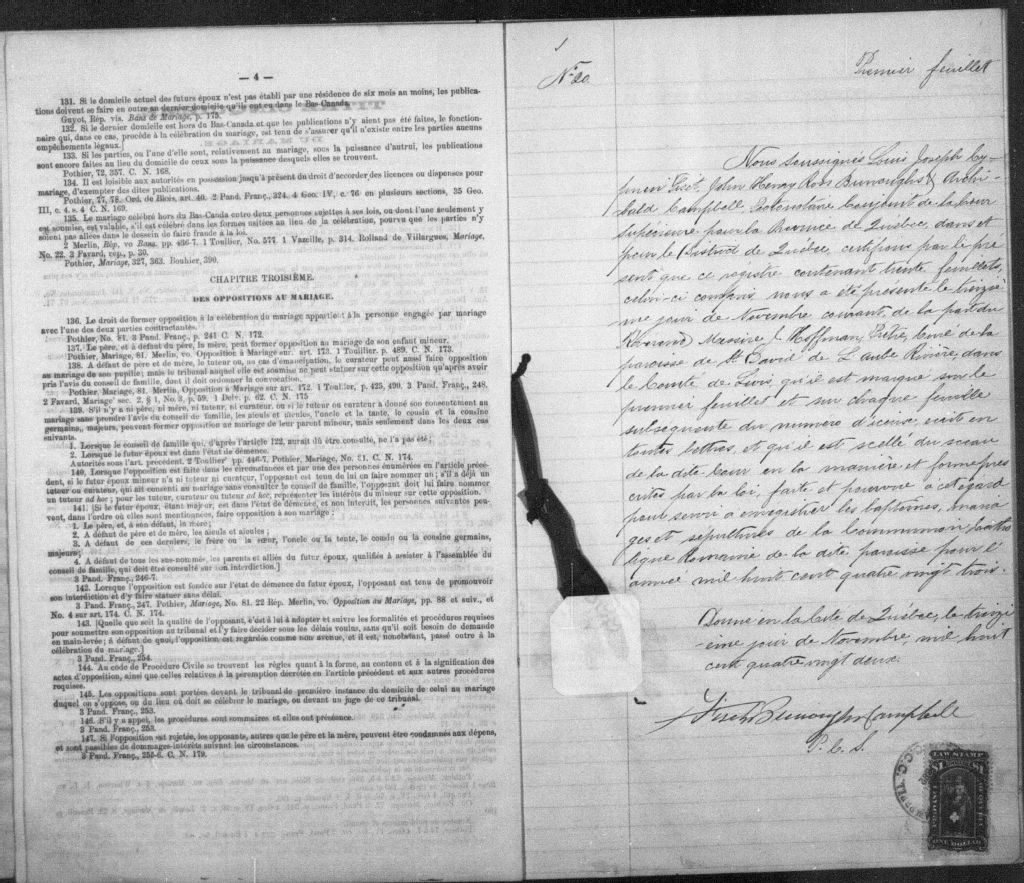 — 4 —
131. Si le domicile actuel des futurs époux n'est pas établi par une résidence de six mois au moins, les publica-
tions doivent se faire en outre au dernier domicile qu'ils ont eu dans le Bas Canada.
Guyot, Rép. vis. Bans de Mariage, p. 175.
132. Si le dernier domicile est hors du Bas-Canada et que les publications n'y aient pas été faites, le fonction-
naire qui, dans ce cas, procède à la célébration du mariage, est tenu de s'assurer qu'il n'existe entre les parties aucuns
empêchements légaux.]
133. Si les parties, ou l'une d'elle sont, relativement au mariage, sous la puissance d'autrui, les publications
sont encore faites au lieu du domicile de ceux sous la puissance desquels elles se trouvent.
Pothier, 72, 357. C. N. 168.
134. Il est loisible aux autorités en possession jusqu'à présent du droit d'accorder des licences ou dispenses pour
mariage, d'exempter des dites publications.
Pothier, 77, 78. Ord. de Blois, art. 40. 2 Pand. Franç., 324. 4 Geo. IV, c. 76 en plusieurs sections, 35 Geo.
III, c. 4. s. 4 C. N. 169.
135. Le mariage célébré hors du Bas-Canda entre deux personnes sujettes à ses lois, ou dont l'une seulement y
est soumise, est valable, s'il est célébré dans les formes usitées au lieu de la célébration, pourvu que les parties n'y
soient pas allées dans le dessein de faire fraude à la loi.
2 Merlin, Rép. vo Bans, pp. 466-7. 1 Toullier, No. 577. 1 Vazeille, p. 314. Rolland de Villargues, Mariage,
No. 22. 3 Favard, rép., p. 59.
Pothier, Mariage, 327, 363. Bouhier, 390.
CHAPITRE TROISIÈME.
DES OPPOSITIONS AU MARIAGE.
136. Le droit de former opposition à la célébration du mariage appartient à la personne engagée par mariage
avec l'une des deux parties contractantes.
Pothier, No. 81. 3 Pand. Franç., p. 241 C. N. 172.
137. Le père, et à défaut du père, la mère, peut former opposition au mariage de son enfant mineur.
Pothier, Mariage, 81. Merlin, vo. Opposition à Mariage sur. art. 173. 1 Toullier, p. 489. C. N. 173.
138. A défaut de père et de mère, le tuteur ou, au cas d'émancipation, le curateur peut aussi faire opposition
au mariage de son pupille; mais le tribunal auquel elle est soumise ne peut statuer sur cette opposition qu'après avoir
pris l'avis du conseil de famille, dont il doit ordonner la convocation.
Pothier, Mariage, 81. Merlin, Opposition à Mariage sur art. 172. 1 Toullier, p. 425, 490. 3 Pand. Franç., 248.
2 Favard, Mariage sec. 2, § 1, No. 3, p. 59. 1 Delv. p. 62. C. N. 175
139. S'il n'y a ni père, ni mère, ni tuteur, ni curateur, ou si le tuteur ou curateur a donné son consentement au
mariage sans prendre l'avis du conseil de famille, les aïeuls et aïeules, l'oncle et la tante, le cousin et la cousine
germains, majeurs, peuvent former opposition au mariage de leur parent mineur, mais seulement dans les deux cas
suivants.
1. Lorsque le conseil de famille qui, d'après l'article 122, aurait dû être consulté, ne l'a pas été;
2. Lorsque le futur époux est dans l'état de démence.
Autorités sous l'art. précédent. 2 Toullier pp. 446-7. Pothier, Mariage, No. 81. C. N. 174.
140. Lorsque l'opposition est faite dans les circonstances et par une des personnes énumérées en l'article précé-
dent, si le futur époux mineur n'a ni tuteur ni curateur, l'opposant est tenu de lui en faire nommer un; s'il a déjà un
tuteur ou curateur, qui ait consenti au mariage sans consulter le conseil de famille, l'opposant doit lui faire nommer
un tuteur ad hoc; pour les tuteur, curateur ou tuteur ad hoc, représenter les intérêts du mineur sur cette opposition.
141. [Si le futur époux, étant majeur, est dans l'état de démence, et non interdit, les personnes suivantes peu-
vent, dans l'ordre où elles sont mentionnées, faire opposition à son mariage:
1. Le père, et, à son défaut, la mère;
2. A défaut de père et de mère, les aïeuls et aïeules;
3. A défaut de ces derniers, le frère ou la sœur, l'oncle ou la tante, le cousin ou la cousine germains,
majeurs;
4. A défaut de tous les sus-nommés, les parents et alliés du futur époux, qualifiés à assister à l'assemblée du
conseil de famille, qui doit être consulté sur son interdiction.]
3 Pand. Franç., 246-7.
142. Lorsque l'opposition est fondée sur l'état de démence du futur époux, l'opposant est tenu de promouvoir
son interdiction et d'y faire statuer sans délai.
3 Pand. Franç., 247. Pothier, Mariage, No. 81. 22 Rép. Merlin, vo. Opposition au Mariage, pp. 88 et suiv., et
No. 4 sur art. 174. C. N. 174.
143. [Quelle que soit la qualité de l'opposant, c'est à lui à adopter et suivre les formalités et procédures requises
pour soumettre son opposition au tribunal et l'y faire décider sous les délais voulus, sans qu'il soit besoin de demande
en main-levée; à défaut de quoi, l'opposition est regardée comme non avenue, et il est, nonobstant, passé outre à la
célébration du mariage.]
3 Pand. Franç., 254.
144. Au code de Procédure Civile se trouvent les règles quant à la forme, au contenu et à la signification des
actes d'opposition, ainsi que celles relatives à la péremption décrétée en l'article précédent et aux autres procédures
requises.
145. Les oppositions sont portées devant le tribunal de première instance du domicile de celui au mariage
duquel on s'oppose, ou du lieu où doit se célébrer le mariage, ou devant un juge de ce tribunal.
3 Pand. Franç., 253.
146. S'il y a appel, les procédures sont sommaires et elles ont préséance.
3 Pand. Franç., 253.
147. Si l'opposition est rejetée, les opposants, autres que le père et la mère, peuvent être condamnés aux dépens,
et sont passibles de dommages-intérêts suivant les circonstances.
3 Pand. Franç., 255-6. C. N. 179.
No 20
Premier feuillet
Nous soussignés Louis Joseph Cy-
prien Fiset, John Henry Ross Burroughs & Archi-
bald Campbell Protonotaire Conjoint de la Cour
Supérieure pour la Province de Québec, dans et
pour le District de Québec, certifions par le pré
sent que ce registre contenant trente feuillets,
celui-ci compris, nous a été présenté le treiziè
me jour de Novembre courant, de la part du
Révérend Messire J. Hoffman, Prêtre, Curé de la
paroisse de St David de L'aube Rivière, dans
le Comté de Lévis, qu'il est marqué sur le
premier feuillet et sur chaque feuille
subséquente du numéro d'icelui, écrit en
toutes lettres, et qu'il est scellé du sceau
de la dite Cour en la manière et forme pres
crites par la loi, faite et pourvue à cet égard
pour servir à enregistrer les baptêmes, maria
ges et sépultures de la Communion Catho
lique Romaine de la dite paroisse pour l'
année mil huit cent quatre vingt trois.
Donné en la Cité de Québec, le treizi
ème jour de Novembre, mil huit
cent quatre vingt deux.
Fiset Burroughs Campbell
P. C. S.
LAW STAMP
$1
PROVINCE OF QUEBEC
ONE DOLLAR